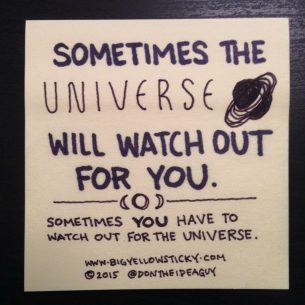 SOMETIMES THE
UNIVERSE
WILL WATCH OUT
FOR YOU.
SOMETIMES YOU HAVE TO
WATCH OUT FOR THE UNIVERSE.
WWW.BIGYELLOWSTICKY.COM
©2015 @DONTHEIDEAGUY